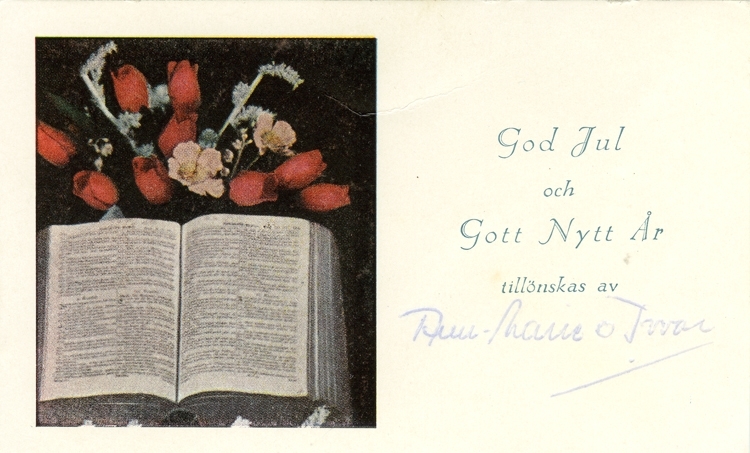 God Jul
och
Gott Nytt År
tillönskas av
Ann-Marie o Ivar